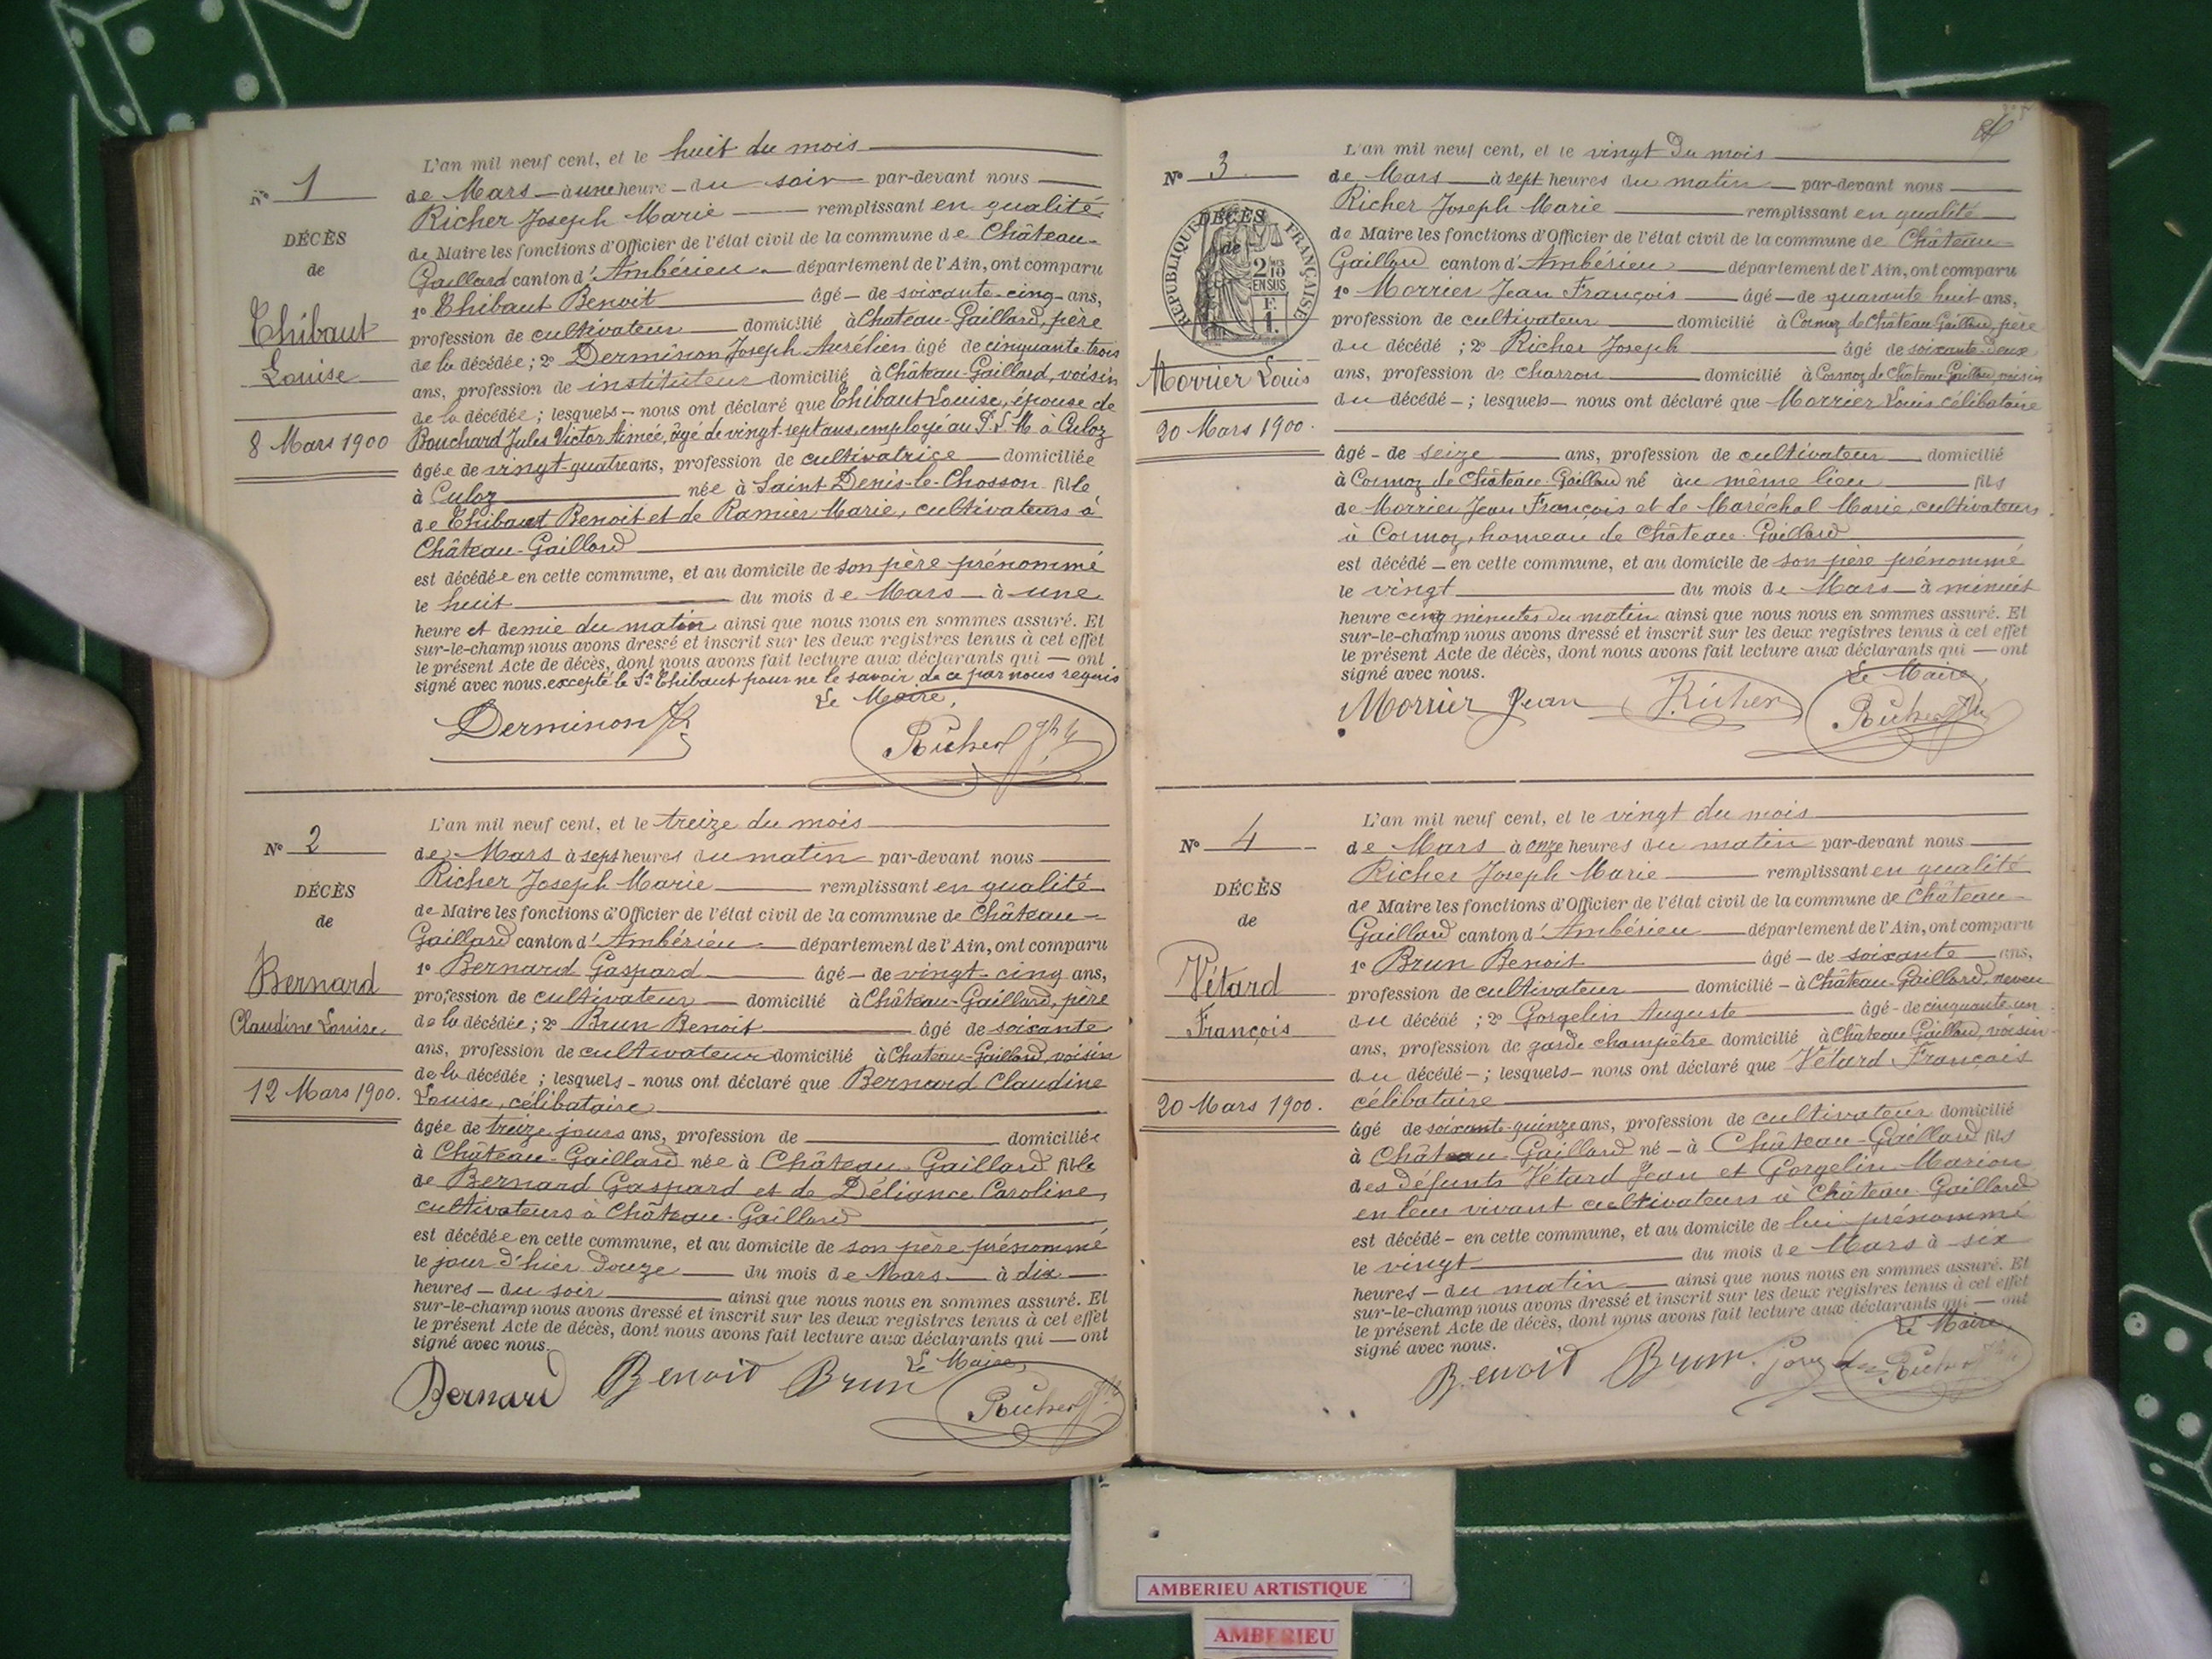 L'an mil neuf cent, et le huit du mois
N° 1
de Mars à une heure du soir par-devant nous
Richer Joseph Marie remplissant en qualité
DÉCÈS
de Maire les fonctions d'Officier de l'état civil de la commune de Château-
de
Gaillard canton d'Ambérieu département de l'Ain, ont comparu
1° Thibaut Benoit âgé de soixante-cinq ans,
Thibaut
profession de cultivateur domicilié à Château-Gaillard, père
de la décédée; 2° Derminon Joseph Aurélien âgé de cinquante-trois
Louise
ans, profession de instituteur domicilié à Château-Gaillard, voisin
de la décédée; lesquels nous ont déclaré que Thibaut Louise, épouse de
8 Mars 1900
Bouchard Jules Victor Aimée, âgé de vingt-sept ans, employé au P.L.M. à Culoz
âgée de vingt-quatre ans, profession de cultivatrice domiciliée
à Culoz née à Saint Denis-le-Chosson fille
de Thibaut Benoit et de Ramier Marie, cultivateurs à
Château-Gaillard
est décédée en cette commune, et au domicile de son père prénommé
le huit du mois de Mars à une
heure et demie du matin ainsi que nous nous en sommes assuré. Et
sur-le-champ nous avons dressé et inscrit sur les deux registres tenus à cet effet
le présent Acte de décès, dont nous avons fait lecture aux déclarants qui ont
signé avec nous. excepté le Sr Thibaut pour ne le savoir de ce par nous requis
Le Maire,
Derminon
Richer Jh
L'an mil neuf cent, et le treize du mois
N° 2
de Mars à sept heures du matin par-devant nous
Richer Joseph Marie remplissant en qualité
DÉCÈS
de Maire les fonctions d'Officier de l'état civil de la commune de Château-
de
Gaillard canton d'Ambérieu département de l'Ain, ont comparu
1° Bernard Gaspard âgé de vingt-cinq ans,
Bernard
profession de cultivateur domicilié à Château-Gaillard, père
Claudine Louise
de la décédée; 2° Brun Benoit âgé de soixante
ans, profession de cultivateur domicilié à Château-Gaillard, voisin
de la décédée; lesquels nous ont déclaré que Bernard Claudine
12 Mars 1900.
Louise, célibataire
âgée de treize jours ans, profession de domiciliée
à Château-Gaillard née à Château-Gaillard fille
de Bernard Gaspard et de Déliance Caroline,
cultivateurs à Château-Gaillard
est décédée en cette commune, et au domicile de son père prénommé
le jour d'hier douze du mois de Mars à dix
heures du soir ainsi que nous nous en sommes assuré. Et
sur-le-champ nous avons dressé et inscrit sur les deux registres tenus à cet effet
le présent Acte de décès, dont nous avons fait lecture aux déclarants qui ont
signé avec nous.
Le Maire,
Bernard Benoit Brun
Richer Jh
L'an mil neuf cent, et le vingt du mois
N° 3
de Mars à sept heures du matin par-devant nous
Richer Joseph Marie remplissant en qualité
DÉCÈS
de
RÉPUBLIQUE FRANÇAISE
2/10 EN SUS
F. 1.
de Maire les fonctions d'Officier de l'état civil de la commune de Château-
Gaillard canton d'Ambérieu département de l'Ain, ont comparu
1° Morrier Jean François âgé de quarante huit ans,
profession de cultivateur domicilié à Cormoz de Château-Gaillard, père
du décédé; 2° Richer Joseph âgé de soixante-deux
Morrier Louis
ans, profession de charron domicilié à Cormoz de Château-Gaillard, voisin
du décédé; lesquels nous ont déclaré que Morrier Louis célibataire
20 Mars 1900.
âgé de seize ans, profession de cultivateur domicilié
à Cormoz de Château-Gaillard né au même lieu fils
de Morrier Jean François et de Maréchal Marie, cultivateurs
à Cormoz, hameau de Château-Gaillard
est décédé en cette commune, et au domicile de son père prénommé
le vingt du mois de Mars à minuit
heure cinq minutes du matin ainsi que nous nous en sommes assuré. Et
sur-le-champ nous avons dressé et inscrit sur les deux registres tenus à cet effet
le présent Acte de décès, dont nous avons fait lecture aux déclarants qui ont
signé avec nous.
Le Maire,
Morrier Jean Richer Richer Jh
L'an mil neuf cent, et le vingt du mois
N° 4
de Mars à onze heures du matin par-devant nous
Richer Joseph Marie remplissant en qualité
DÉCÈS
de Maire les fonctions d'Officier de l'état civil de la commune de Château-
de
Gaillard canton d'Ambérieu département de l'Ain, ont comparu
1° Brun Benoit âgé de soixante ans,
Vétard
profession de cultivateur domicilié à Château-Gaillard, neveu
du décédé; 2° Gorgelin Auguste âgé de cinquante-un
François
ans, profession de garde champêtre domicilié à Château-Gaillard, voisin
du décédé; lesquels nous ont déclaré que Vétard François
20 Mars 1900.
célibataire
âgé de soixante-quinze ans, profession de cultivateur domicilié
à Château-Gaillard né à Château-Gaillard fils
des défunts Vétard Jean et Gorgelin Marion
en leur vivant cultivateurs à Château-Gaillard
est décédé en cette commune, et au domicile de lui prénommé
le vingt du mois de Mars à six
heures du matin ainsi que nous nous en sommes assuré. Et
sur-le-champ nous avons dressé et inscrit sur les deux registres tenus à cet effet
le présent Acte de décès, dont nous avons fait lecture aux déclarants qui ont
signé avec nous.
Le Maire,
Benoit Brun Richer
AMBERIEU ARTISTIQUE
AMBERIEU